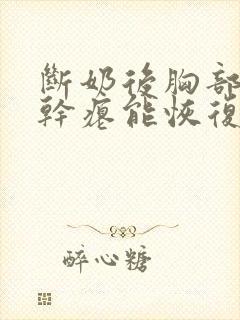 斷奶後胸部
幹癟能恢復
醉心糖